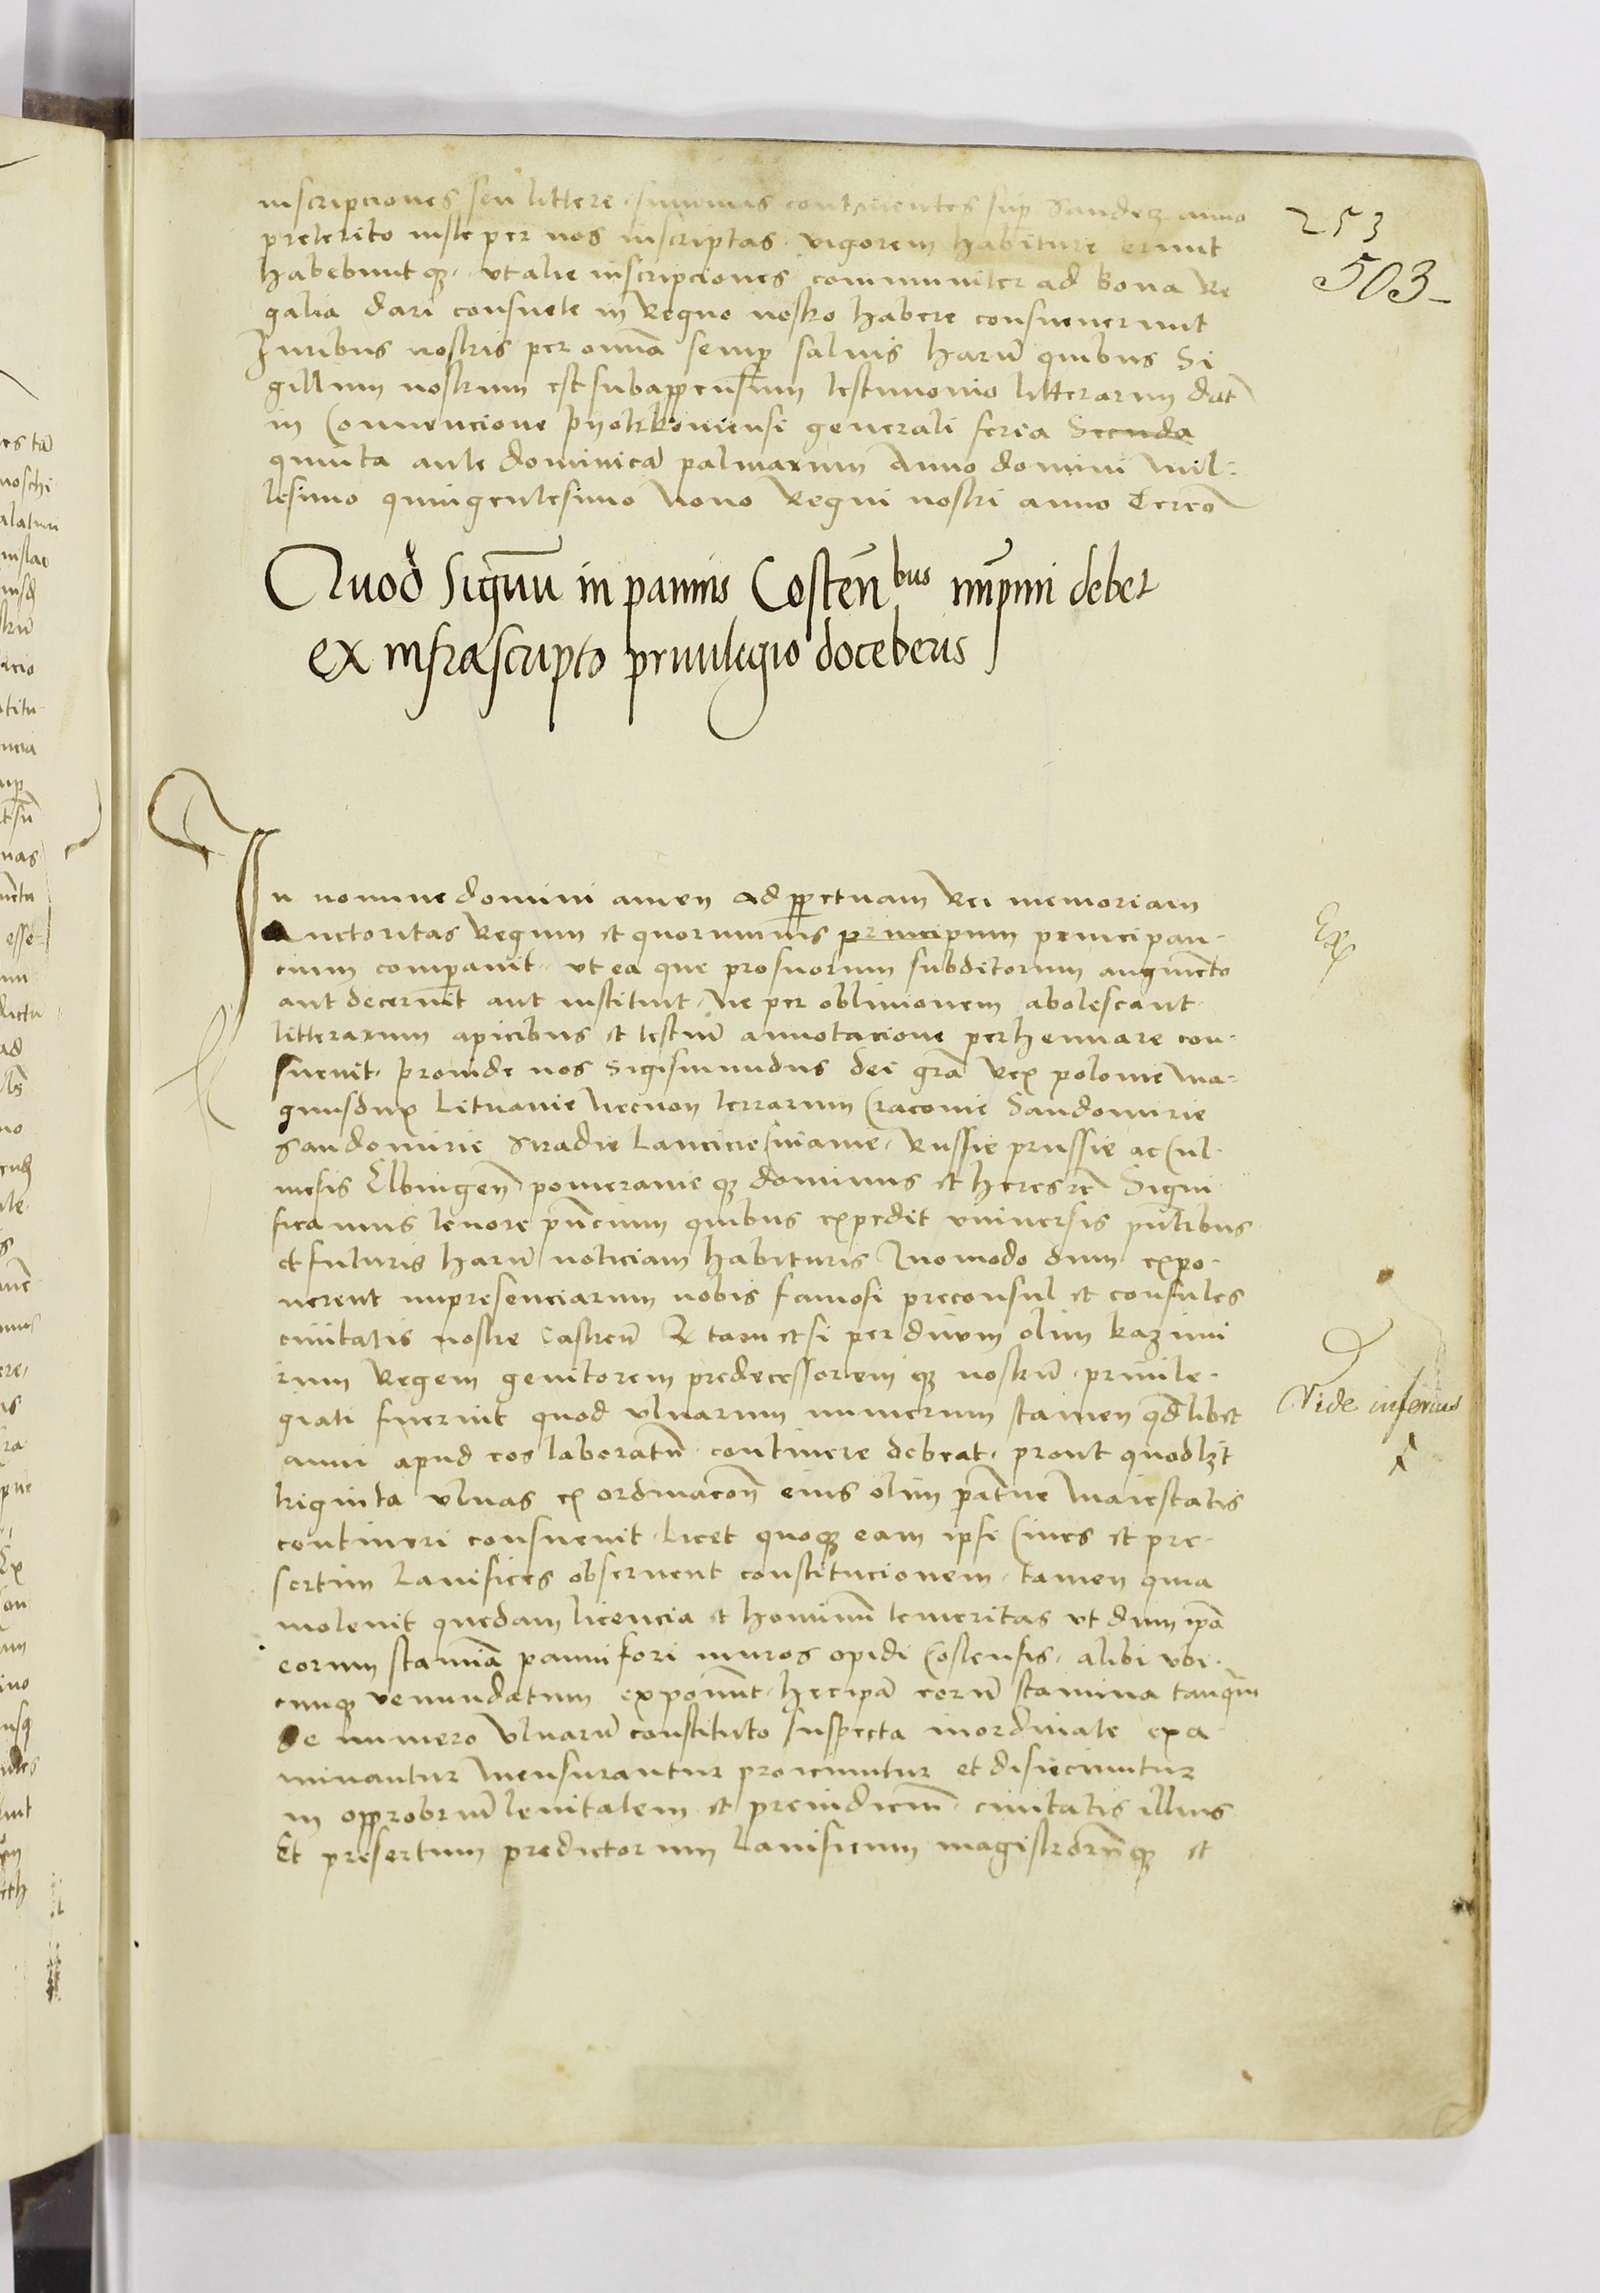 inscripciones seu littere summas continentes sup Sandecz anno
preterito iuste per nos inscriptas vigorem habiture erunt
habebuntqz ut alie inscripciones communiter ad bona Re
galia dari consuete in Regno nostro habere consueverunt
Juribus nostris per omnia semp salvis harū quibus Si
gillum nostrum est subappensum testimonio litterarum dat
in Convencione Pyotrkoviensi generali feria Secunda
quinta ante dominicā palmarum Anno domini Mil-
lesimo quingentesimo Nono Regni nostri anno Tercio
253
503-
Quod Signum in pannis Costeñbus imprimi debet
ex infrascripto privilegio doceberis
In nomine domini amen Ad perpetuam Rei memoriam
Auctoritas Regum et quorumuis principum principan-
cium comparauit ut ea que pro suorum subditorum augmēto
aut decernit aut instituit Ne per oblivionem abolescant
litterarum apicibus et testiū annotacione perhennare con-
sueuit Proinde nos Sigismundus dei grā Rex polonie Ma-
gnusdux Lituanie Necnon terrarum Cracovie Sandomirie
Sandomirie Siradie Lancicie Cuiavie Russie prussie ac Cul-
mesis Elbingeñ pomeranieqz dominus et heres rc Signi
ficamus tenore pñcium quibus expedit universis pñtibus
et futuris harū noticiam habituris Quomodo dum expo-
nerent impresenciarum nobis famosi preconsul et consules
civitatis nostre Costeñ Q tametsi per divum olim kazimi
irum Regem genitorem predecessoremqz nostrū privile-
giati fuerint quod ulnarum numerum stamen qdlibet
anni apud eos laboratū continere debeat prout quodlzt
triginta ulnas ex ordinacoñ eius olim paterne Maiestatis
contineri consuevit Licet quoqz eam ipsi Cives et pre-
sertim Lanifices observent constitucionem tamen quia
inolevit quedam licencia et hominū temeritas ut dum ipā
eorum stamīa panni fori muros opidi Costensis alibi ubi-
cunqz venundatum exponunt hec ipā eorū stamina tanqm
de numero Ulnarū constituto suspecta inordinate exa
minantur Mensurantur proiciuntur et disieciuntur
in opprobriū levitatem et preiudiciū civitatis illius
Et presertim predictorum Lanificum magistrorūqz et
Ex
Vide inferius